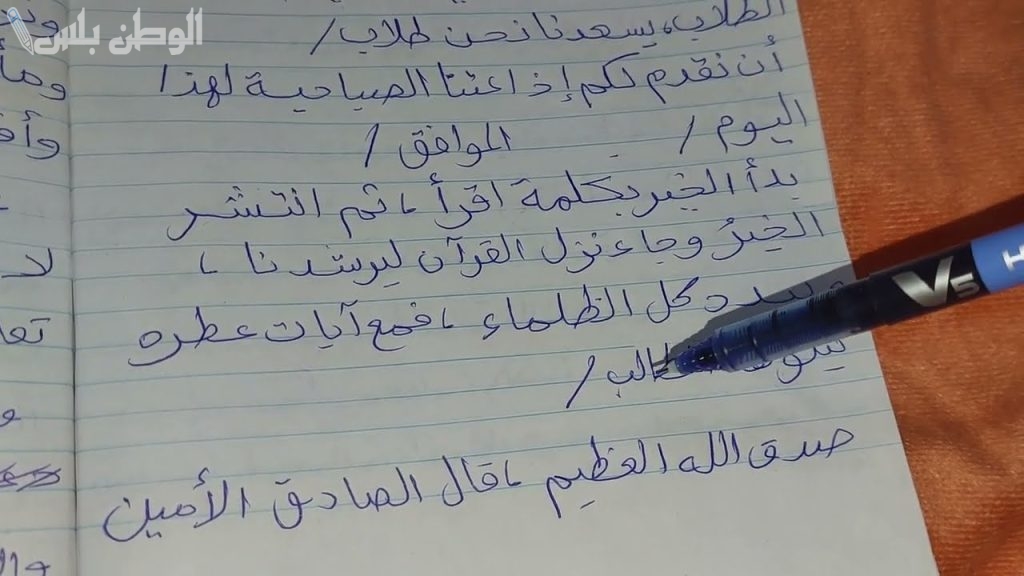 الوطن بلس
الطلاب، يسعدنا نحن طلاب /
أن نقدم لكم إذاعتنا الصباحية لهذا
اليوم / الموافق /
بدأ الخير بكلمة اقرأ ، ثم انتشر
الخيرُ وجاء نزل القرآن ليرشدنا ،
كل الظلماء ، فمع آيات عطره
/
صدق الله العظيم ، قال الصادق الأمين
لا
تعا
و
V5
H